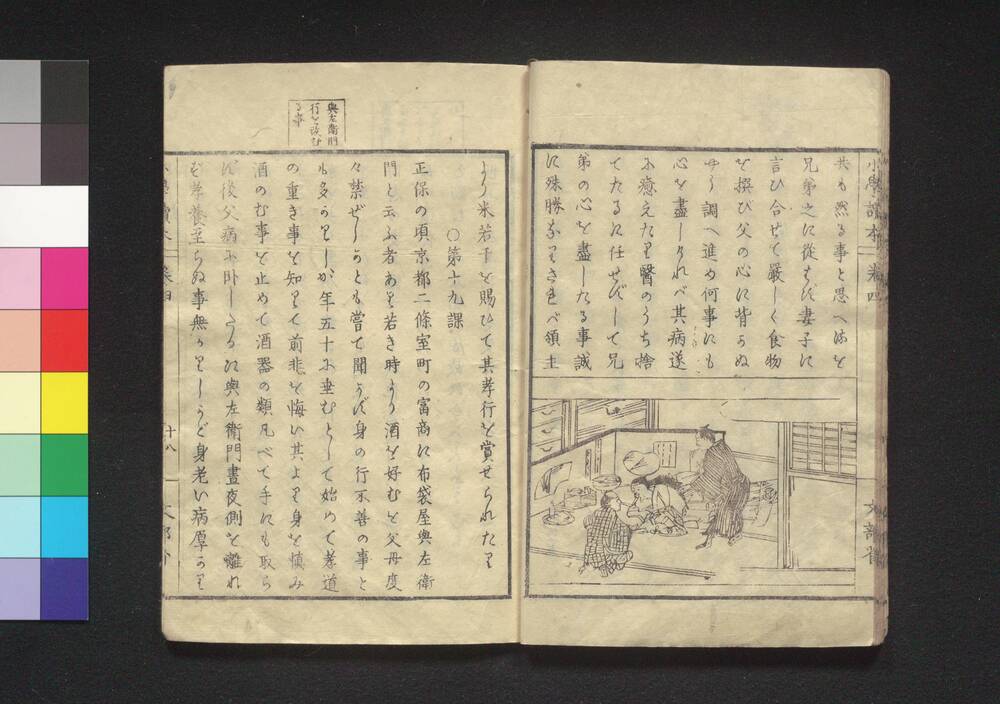 小學讀本 卷四
文部省
共も然る事と思へばを
兄弟之に從はず妻子に
言ひ合せて嚴しく食物
を撰び父の心に背かぬ
やう調へ進め何事にも
心を盡しければ其病遂
に癒えたり醫のうち捨
てたるに任せずして兄
弟の心を盡したる事誠
に殊勝なりされば領主
より米若干を賜ひて其孝行を賞せられたり
○第十九課
與左衛門
行を改む
る事
正保の頃京都二條室町の富商に布袋屋與左衛
門と云ふ者あり若き時より酒を好むを父母度
々禁ぜしかども嘗て聞かず身の行不善の事と
も多かりしが年五十に垂むとして始めて孝道
の重き事を知りて前非を悔い其より身を愼み
酒のむ事を止めて酒器の類凡べて手にも取ら
ず後父病に臥したるに與左衛門晝夜側を離れ
ず孝養至らぬ事無かりしかど身老い病厚かり
十八